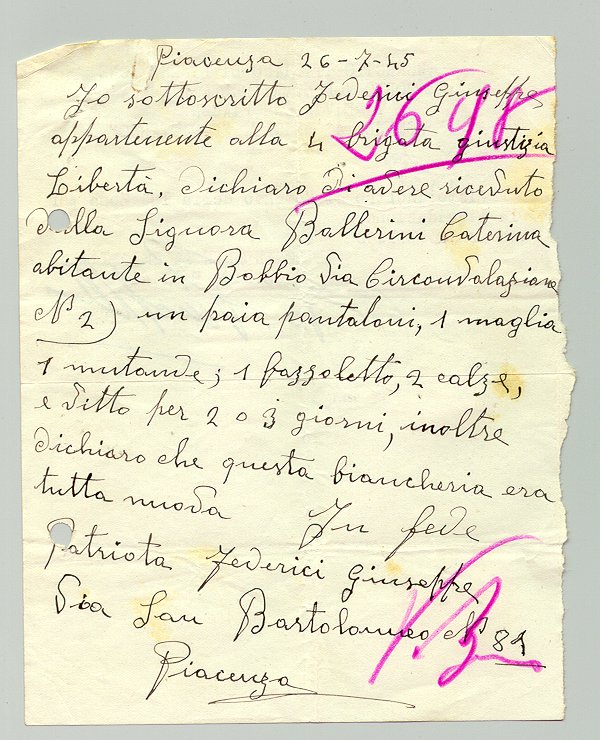 Piacenza 26-7-45
Io sottoscritto Federici Giuseppe
2698
appartenente alla 4 brigata giustizia
Libertà, dichiaro di avere ricevuto
dalla Signora Ballerini Caterina
abitante in Bobbio Via Circonvalazione
N° 2) un paia pantaloni, 1 maglia
1 mutande; 1 fazzoletto, 2 calze,
e vitto per 2 o 3 giorni, inoltre
dichiaro che questa biancheria era
tutta nuova In fede
Patriota Federici Giuseppe
Via San Bartolomeo N° 81
Piacenza